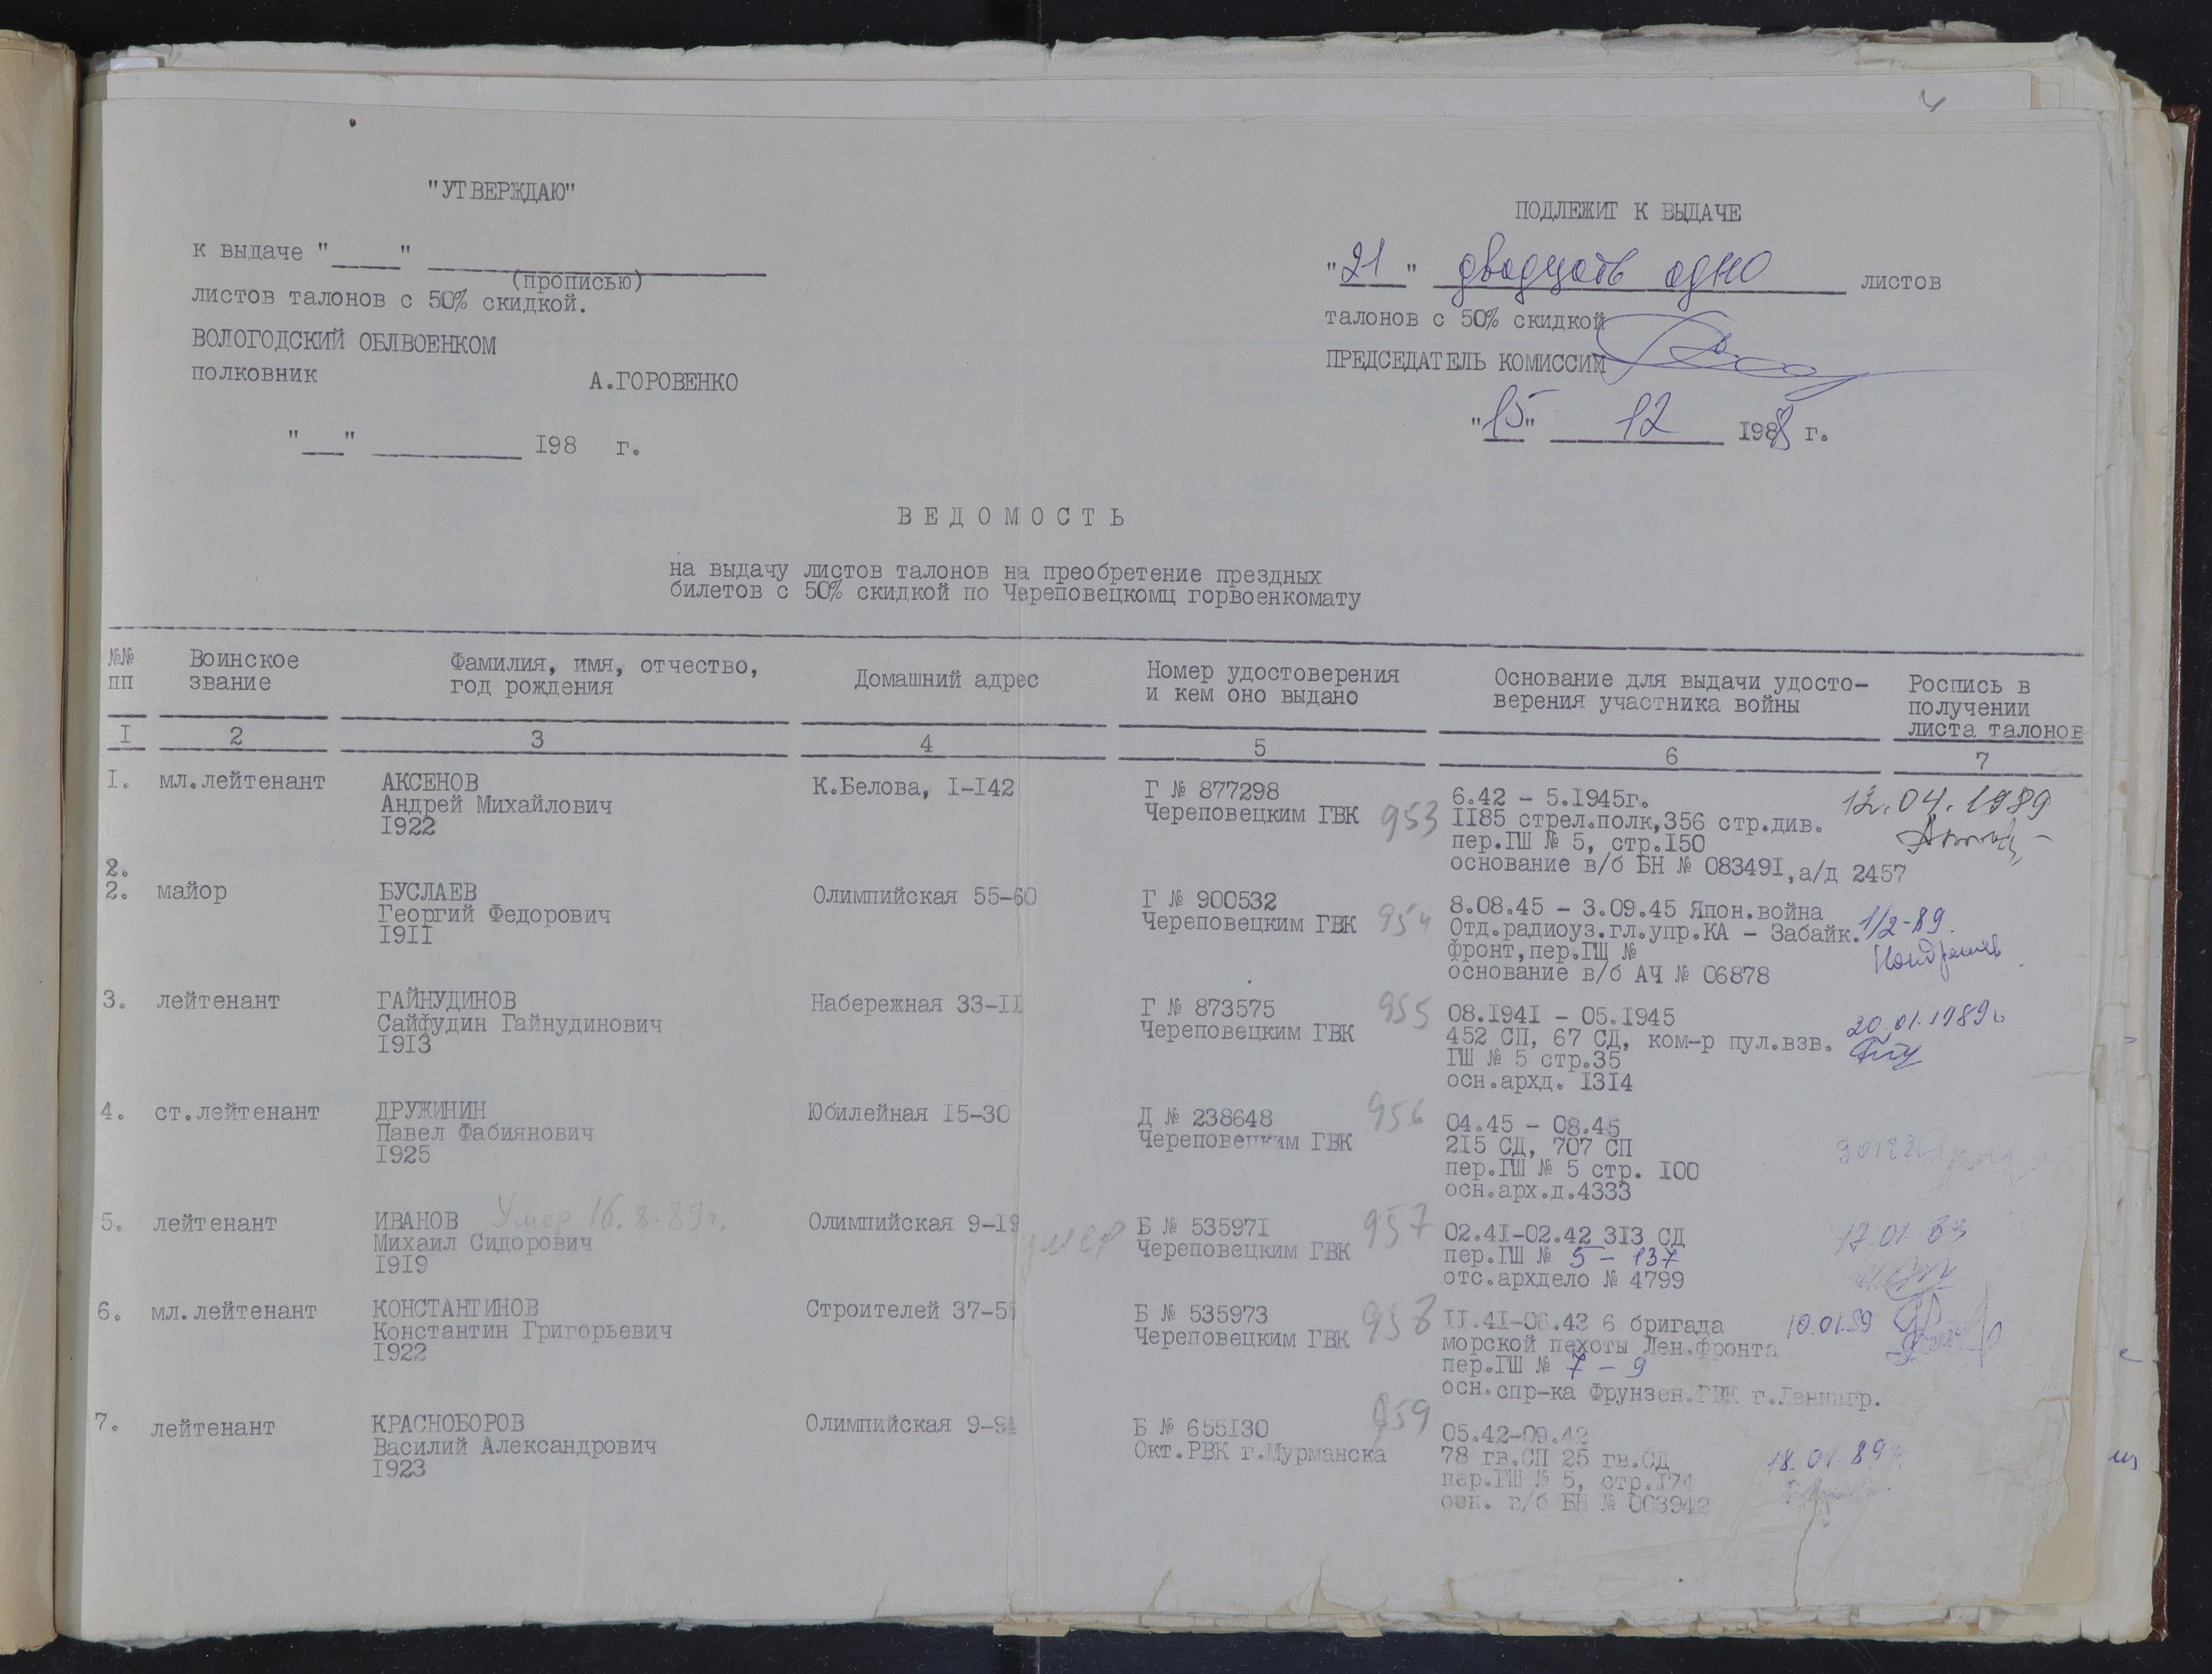 "УТВЕРЖДАЮ"
к выдаче "____" ____________________
(прописью)
листов талонов с 50% скидкой.
ВОЛОГОДСКИЙ ОБЛВОЕНКОМ
полковник А.ГОРОВЕНКО
"___" __________ 198 г.
ПОДЛЕЖИТ К ВЫДАЧЕ
"21" двадцать одно листов
талонов с 50% скидкой
ПРЕДСЕДАТЕЛЬ КОМИССИИ
"15" 12 1988 г.
ВЕДОМОСТЬ
на выдачу листов талонов на преобретение прездных
билетов с 50% скидкой по Череповецкомц горвоенкомату
№№ пп
Воинское звание
Фамилия, имя, отчество,
год рождения
Домашний адрес
Номер удостоверения
и кем оно выдано
Основание для выдачи удосто-
верения участника войны
Роспись в
получении
листа талонов
I 2 3 4 5 6 7
I. мл.лейтенант АКСЕНОВ К.Белова, I-I42 Г № 877298 6.42 - 5.I945г. 12.04.1989
Андрей Михайлович Череповецким ГВК 953 II85 стрел.полк,356 стр.див.
I922 пер.ГШ № 5, стр.I50
2. основание в/б БН № 08349I,а/д 2457
2. майор БУСЛАЕВ Олимпийская 55-60 Г № 900532 8.08.45 - 3.09.45 Япон.война
Георгий Федорович Череповецким ГВК 954 Отд.радиоуз.гл.упр.КА - Забайк. 1/2-89.
I9II фронт,пер.ГШ №
основание в/б АЧ № 06878
3. лейтенант ГАЙНУДИНОВ Набережная 33-II Г № 873575 955 08.I94I - 05.I945
Сайфудин Гайнудинович Череповецким ГВК 452 СП, 67 СД, ком-р пул.взв. 20.01.1989г
I9I3 ГШ № 5 стр.35
осн.архд. I3I4
4. ст.лейтенант ДРУЖИНИН Юбилейная I5-30 Д № 238648 956 04.45 - 08.45
Павел Фабиянович Череповецким ГВК 215 СД, 707 СП
I925 пер.ГШ № 5 стр. I00
осн.арх.д.4333
5. лейтенант ИВАНОВ Умер 16.8.89г. Олимпийская 9-I9 умер Б № 53597I 957 02.4I-02.42 3I3 СД
Михаил Сидорович Череповецким ГВК пер.ГШ № 5 - 137
I9I9 отс.архдело № 4799
6. мл.лейтенант КОНСТАНТИНОВ Строителей 37-5 Б № 535973 958 II.4I-06.43 6 бригада 10.01.89
Константин Григорьевич Череповецким ГВК морской пехоты Лен.фронта
I922 пер.ГШ № 7 - 9
осн.спр-ка Фрунзен.ГВК г.Ленингр.
7. лейтенант КРАСНОБОРОВ Олимпийская 9-94 Б № 655I30 959 05.42-09.42
Василий Александрович Окт.РВК г.Мурманска 78 гв.СП 25 гв.СД 18.01.89
I923 пер.ГШ № 5, стр.I74
осн. в/б БН № 003942